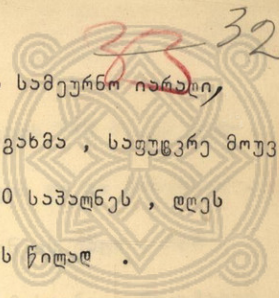 33 32
სამეურნო იარაღი,
გახმა , საფუტკრე მოუვ
0 საპალნეს , დღეს
ს წილად .